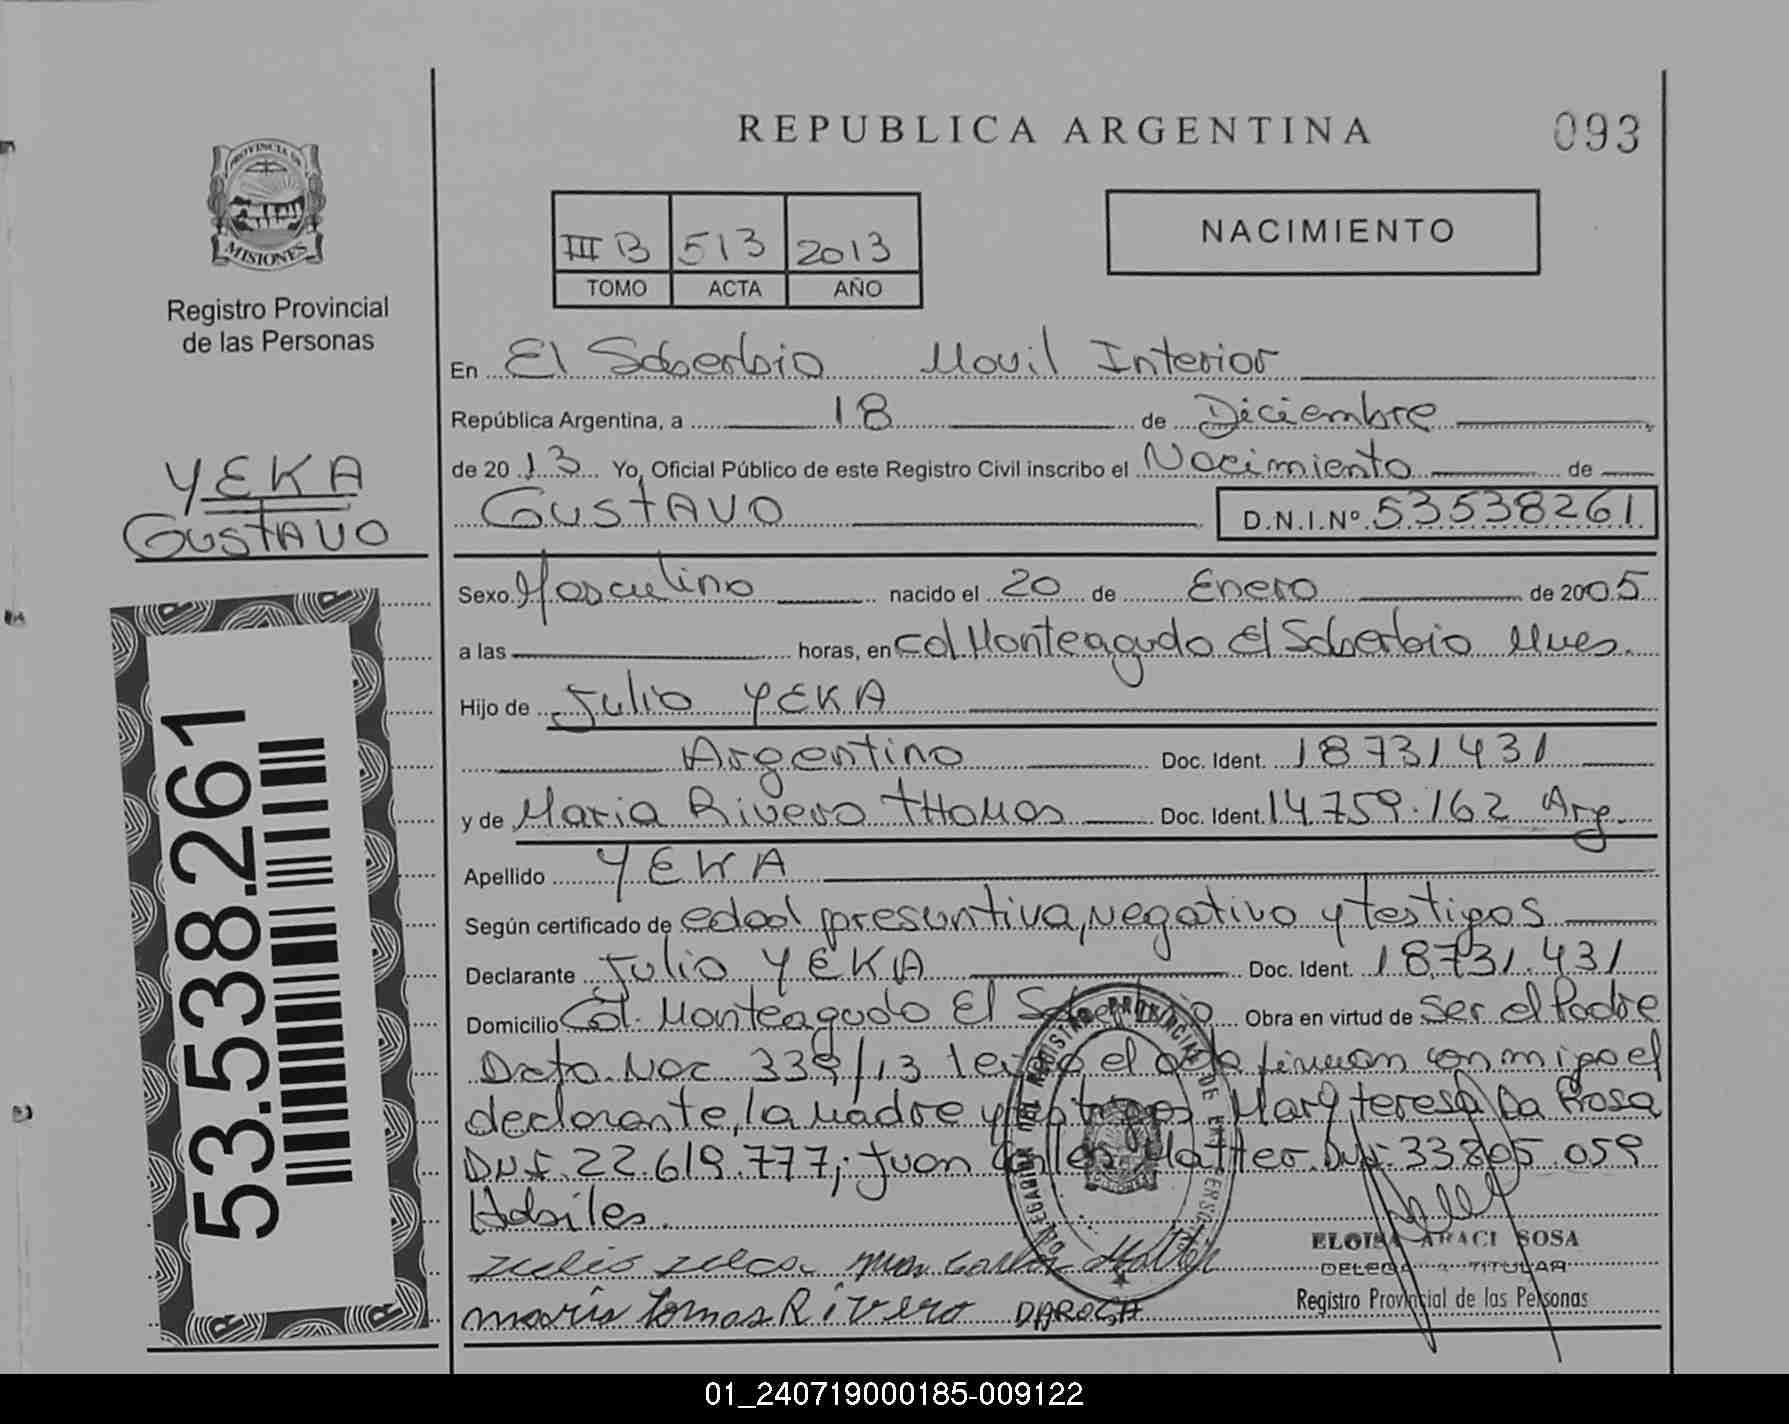 REPUBLICA ARGENTINA
093
PROVINCIA DE
MISIONES
Registro Provincial
de las Personas
III B 513 2013
TOMO ACTA AÑO
NACIMIENTO
En El Soberbio Movil Interior
República Argentina, a 18 de Diciembre
de 2013 Yo, Oficial Público de este Registro Civil inscribo el Nacimiento de
YEKA
GUSTAVO
GUSTAVO D.N.I.Nº 53538261
Sexo Masculino nacido el 20 de Enero de 2005
a las horas, en Col Monteagudo El Soberbio Mnes.
Hijo de Julio YEKA
Argentino Doc. Ident. 18731431
y de Maria Rivero THomas Doc. Ident. 14.759.162 Arg.
Apellido YEKA
Según certificado de edad presuntiva, negativo y testigos
Declarante Julio YEKA Doc. Ident. 18.731.431
Domicilio Col. Monteagudo El Soberbio Obra en virtud de ser el Padre
Dcto. Nac 339/13 leido el acta firman conmigo el
declarante, la madre y testigos Mary teresa Da Rosa
DNI. 22.619.777; Juan Carlos Matter DNI 33.805.059
Habiles.
Juan Carlos Matter
maria tomas Rivero DAROSA
ELOISA ARACI SOSA
DELEGADA TITULAR
Registro Provincial de las Personas
REGISTRO PROVINCIAL DE PERSONAS
53.538.261
01_240719000185-009122